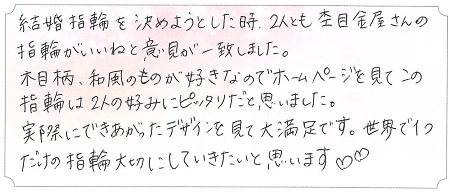 結婚指輪を決めようとした時、2人とも杢目金屋さんの
指輪がいいねと意見が一致しました。
木目柄、和風のものが好きなのでホームページを見てこの
指輪は2人の好みにピッタリだと思いました。
実際にできあがったデザインを見て大満足です。世界で1つ
だけの指輪大切にしていきたいと思います♡♡